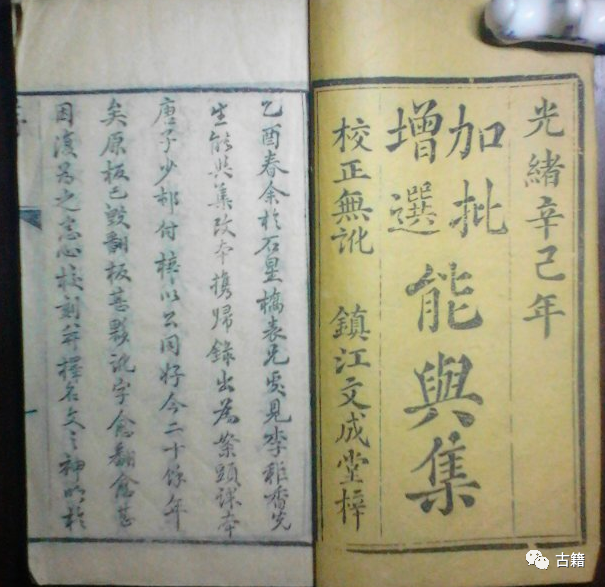 光緒辛己年
加批
增選
能與集
校正無訛 鎮江文成堂梓
乙酉春余於石星橋表兄處見李稚香先
生能與集改本携歸錄出為案頭課本
唐子少邨付梓以公同好今二十餘年
矣原板已毀翻板甚夥訛字愈翻愈甚
因復為之悉心校刻并擇名文之神明於
古籍